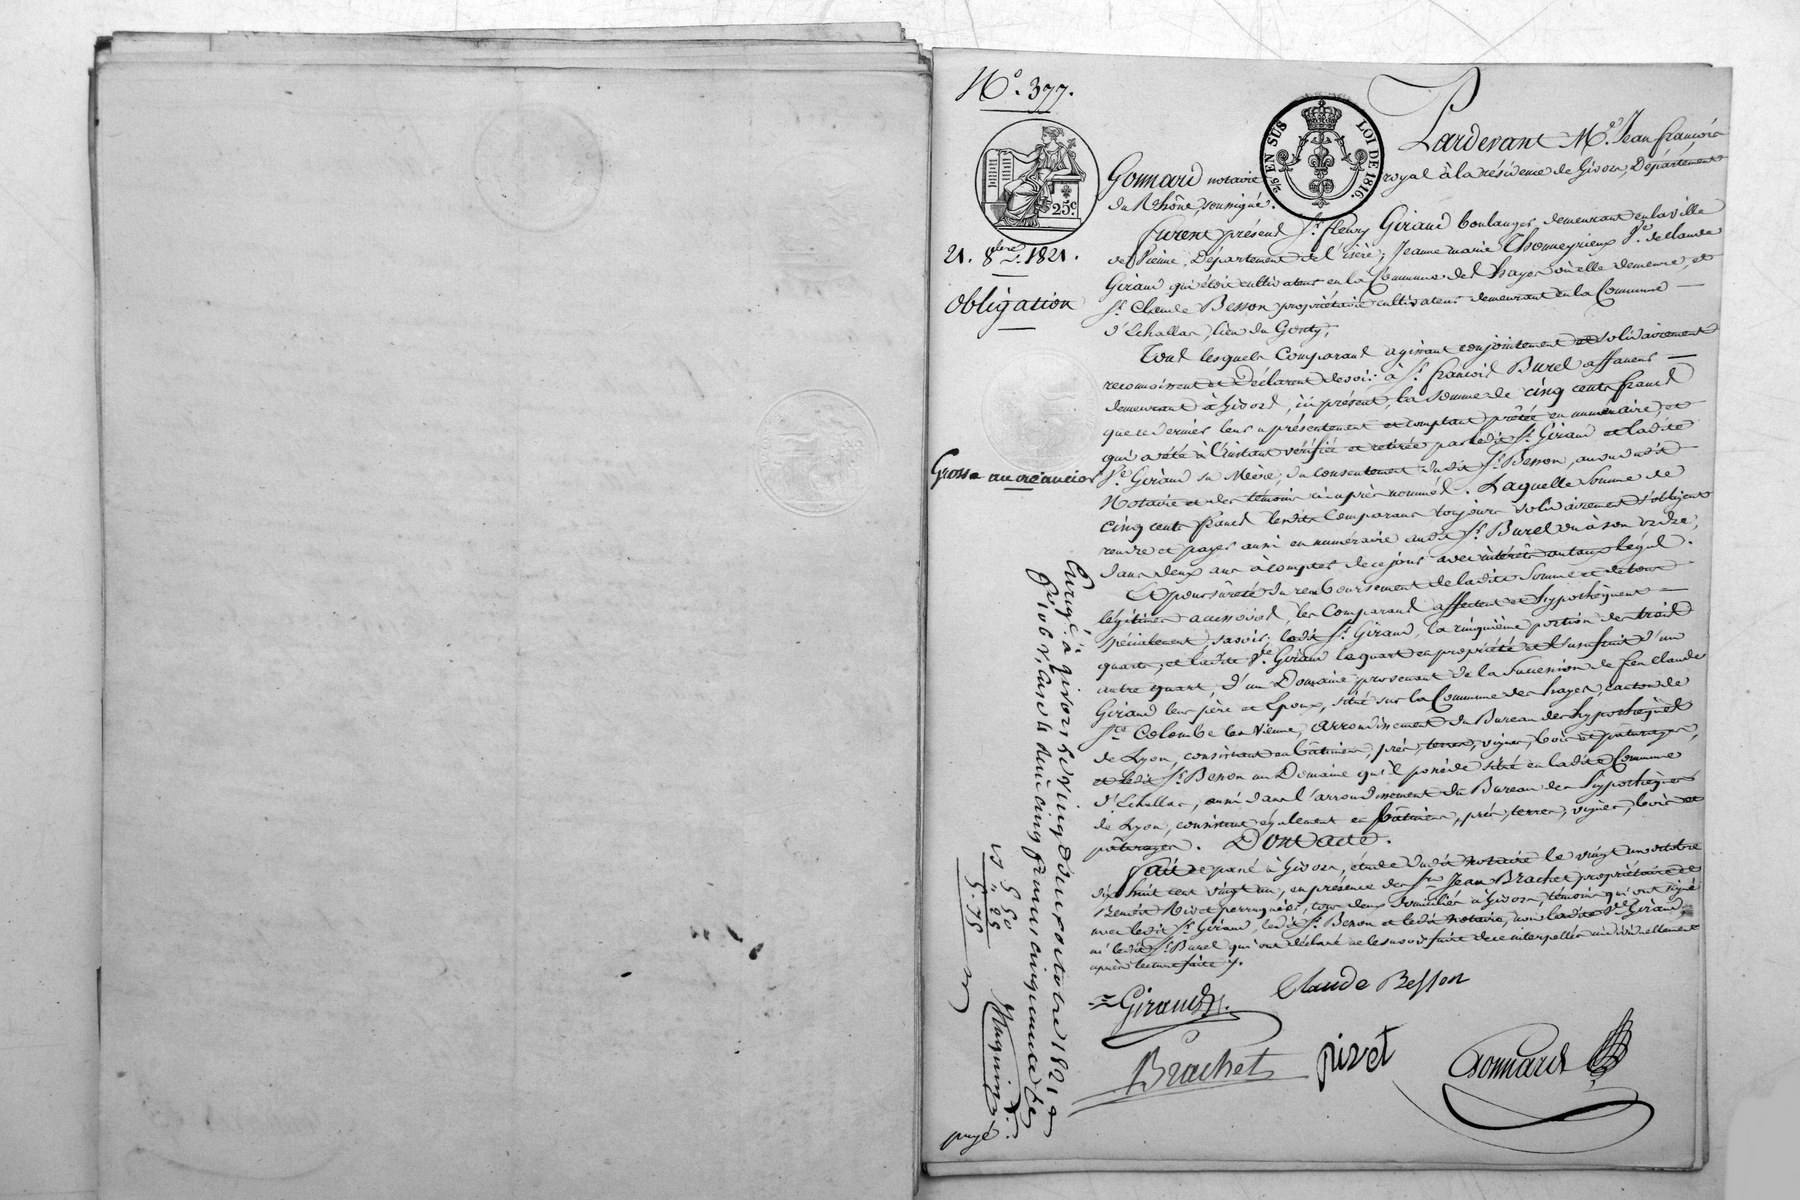 N.º 377.
25.c
2/5 EN SUS LOI DE 1816.
21. 8bre. 1821.
Obligation
Grosse au créancier
Pardevant M.e Jean françois
Gonnard notaire royal à la résidence de Givors, Département
du Rhône, soussigné.
furent présens S.r fleury Giraud boulanger demeurant en la ville
de Vienne, Département de l'isère; Jeanne marie Thomeyrieux V.e de Claude
Giraud qui étoit cultivateur en la Commune des hayes où elle demeure, et
S.r Claude Besson propriétaire cultivateur demeurant en la Commune —
d'Echallas, lieu du Gorty;
Tous lesquels Comparans agissant conjointement et solidairement
reconnoissent et Déclarent devoir à S.r françois Burel affaneur —
demeurant à Givors, ici présent, la somme de cinq cents francs
que ce dernier leur a présentement et comptant prêtée en numéraire, et
qui a été à l'instant vérifiée et retirée par ledit S.r Giraud et ladite
V.e Giraud sa Mère, du consentement dudit S.r Besson, au vu dudit
Notaire et des témoins ci après nommés. Laquelle somme de
cinq cents francs lesdits Comparans toujours solidairement s'obligent
rendre et payer aussi en numéraire audit S.r Burel ou à son ordre,
dans deux ans à compter de ce jour avec intérêts au taux légal.
Et pour sûreté du remboursement de ladite Somme et de tous
légitimes accessoires, les Comparans affectent et hypothèquent —
spécialement, savoir; ledit S.r Giraud, la cinquième portion des trois
quarts, et ladite V.e Giraud le quart en propriété et l'usufruit d'un
autre quart, d'un Domaine provenant de la Succession de feu Claude
Giraud leur père et Epoux, situé sur la Commune des hayes, canton de
S.te Colombe les Vienne, arrondissement du Bureau des hypothèques
de Lyon, consistant en bâtimens, prés, terres, vignes, bois et pâturages,
et ledit S.r Besson un Domaine qu'il possède situé en ladite Commune
d'Echallas, aussi dans l'arrondissement du Bureau des hypothèques
de Lyon, consistant également en bâtimens, prés, terres, vignes, bois et
pâturages. Dont acte.
Fait et passé à Givors, étude dudit notaire le vingt un octobre
dix huit cent vingt un, en présence des S.rs Jean Brachet propriétaire et
Benoît Rivet perruquier, tous deux domiciliés à Givors, témoins qui ont signé
avec ledit S.r Giraud, ledit S.r Besson et ledit notaire, non ladite V.e Giraud,
ni ledit S.r Burel qui ont déclaré ne le savoir faire de ce interpellés individuellement
après lecture faite ./.
Giraud
Claude Besson
Brachet
rivet
Gonnard
Enregé à givors le vingt deux octobre 1821 f.o
106 v, case 4 reçu cinq francs cinquante c.
5 50
" 25
5. 75
payé